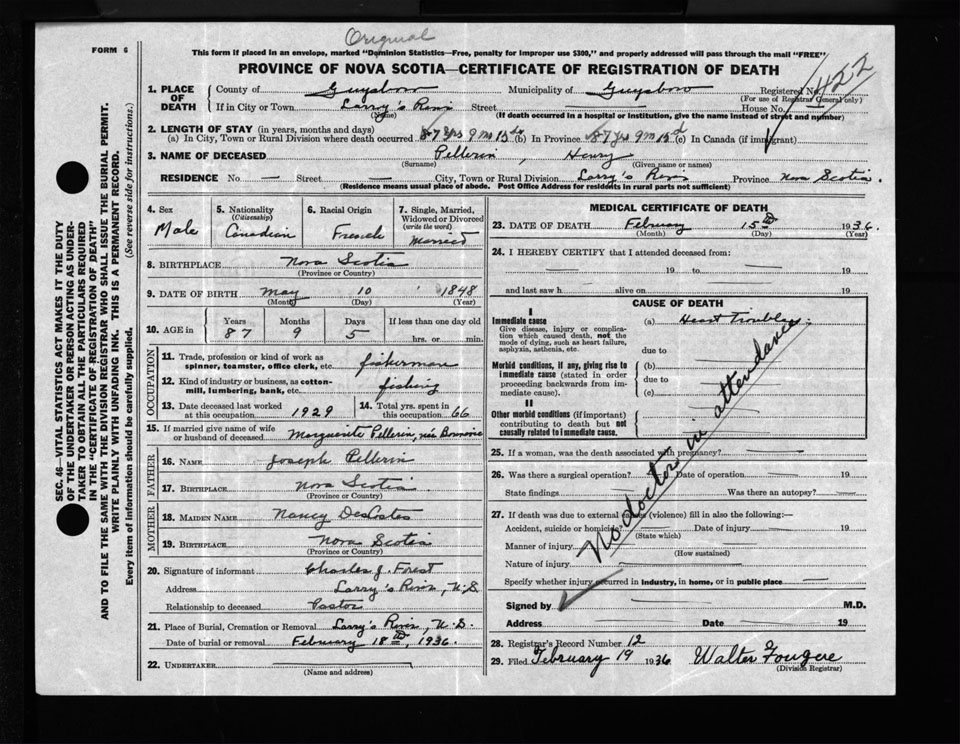 Original
FORM 6
This form if placed in an envelope, marked "Dominion Statistics—Free, penalty for improper use $300," and properly addressed will pass through the mail "FREE"
PROVINCE OF NOVA SCOTIA—CERTIFICATE OF REGISTRATION OF DEATH
1. PLACE OF DEATH
County of Guysboro Municipality of Guysboro Registered No. 1422
(For use of Registrar General only)
If in City or Town Larry's River Street House No.
(Name) (If death occurred in a hospital or institution, give the name instead of street and number)
2. LENGTH OF STAY (in years, months and days)
(a) In City, Town or Rural Division where death occurred 87 yrs 9 mo 15 ds (b) In Province 87 yrs 9 mo 15 d (c) In Canada (if immigrant)
3. NAME OF DECEASED Pellerin, Henry
(Surname) (Given name or names)
RESIDENCE No. — Street — City, Town or Rural Division Larry's River Province Nova Scotia.
(Residence means usual place of abode. Post Office Address for residents in rural parts not sufficient)
4. Sex Male
5. Nationality (Citizenship) Canadian
6. Racial Origin French
7. Single, Married, Widowed or Divorced (write the word) Married
8. BIRTHPLACE Nova Scotia
(Province or Country)
9. DATE OF BIRTH May 10 1848
(Month) (Day) (Year)
10. AGE in Years 87 Months 9 Days 5 If less than one day old hrs. or min.
OCCUPATION
11. Trade, profession or kind of work as spinner, teamster, office clerk, etc. fisherman
12. Kind of industry or business, as cotton-mill, lumbering, bank, etc. fishing
13. Date deceased last worked at this occupation 1929
14. Total yrs. spent in this occupation 66
15. If married give name of wife or husband of deceased Marguerite Pellerin, née
FATHER
16. NAME Joseph Pellerin
17. BIRTHPLACE Nova Scotia
(Province or Country)
MOTHER
18. MAIDEN NAME Nancy DesCoates
19. BIRTHPLACE Nova Scotia
(Province or Country)
20. Signature of informant Charles J. Forest
Address Larry's River, N.S.
Relationship to deceased Pastor
21. Place of Burial, Cremation or Removal Larry's River, N.S.
Date of burial or removal February 18th, 1936.
22. UNDERTAKER
(Name and address)
MEDICAL CERTIFICATE OF DEATH
23. DATE OF DEATH February 15th 1936.
(Month) (Day) (Year)
24. I HEREBY CERTIFY that I attended deceased from:
19 to 19
and last saw h alive on 19
CAUSE OF DEATH
I
Immediate cause
Give disease, injury or complication which caused death, not the mode of dying, such as heart failure, asphyxia, asthenia, etc.
(a) Heart Trouble.
due to
Morbid conditions, if any, giving rise to immediate cause (stated in order proceeding backwards from immediate cause).
(b)
due to
(c)
II
Other morbid conditions (if important) contributing to death but not causally related to immediate cause.
No doctor in attendance
25. If a woman, was the death associated with pregnancy?
26. Was there a surgical operation? Date of operation 19
State findings Was there an autopsy?
27. If death was due to external causes (violence) fill in also the following:—
Accident, suicide or homicide? Date of injury 19
(State which)
Manner of injury
(How sustained)
Nature of injury
Specify whether injury occurred in industry, in home, or in public place
Signed by M.D.
Address Date 19
28. Registrar's Record Number 12
29. Filed February 19 1936 Walter Fougere
(Division Registrar)
SEC. 46—VITAL STATISTICS ACT MAKES IT THE DUTY
OF THE UNDERTAKER OR PERSON ACTING AS UNDER-
TAKER TO OBTAIN ALL THE PARTICULARS REQUIRED
IN THE "CERTIFICATE OF REGISTRATION OF DEATH"
AND TO FILE THE SAME WITH THE DIVISION REGISTRAR WHO SHALL ISSUE THE BURIAL PERMIT.
WRITE PLAINLY WITH UNFADING INK. THIS IS A PERMANENT RECORD.
Every item of information should be carefully supplied. (See reverse side for instructions.)